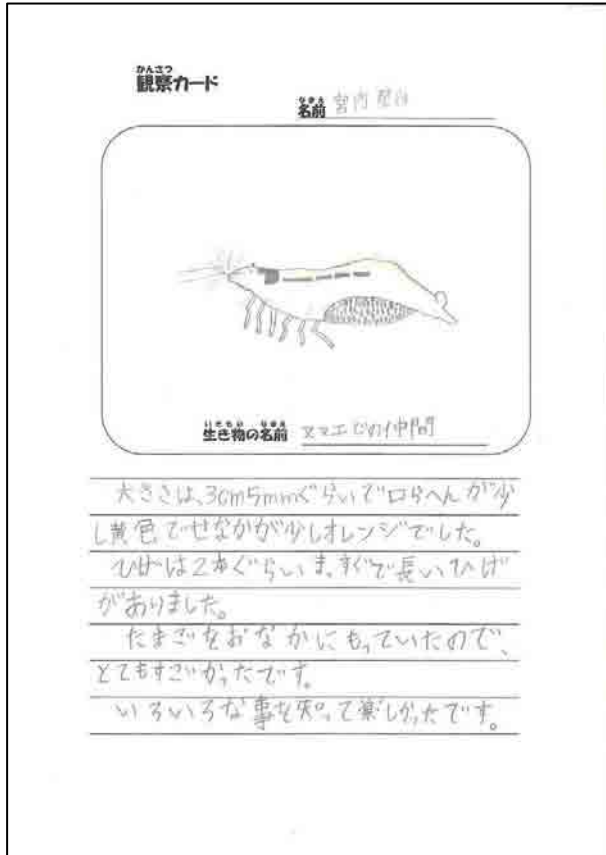 かんさつ
観察カード
なまえ
名前 宮内
いきもの なまえ
生き物の名前 ヌマエビの仲間
大きさは、3cm5mmぐらいで口らへんが少
し黄色でせなかが少しオレンジでした。
ひげは2本ぐらいまっすぐで長いひげ
がありました。
たまごをおなかにもっていたので、
とてもすごかったです。
いろいろな事を知って楽しかったです。